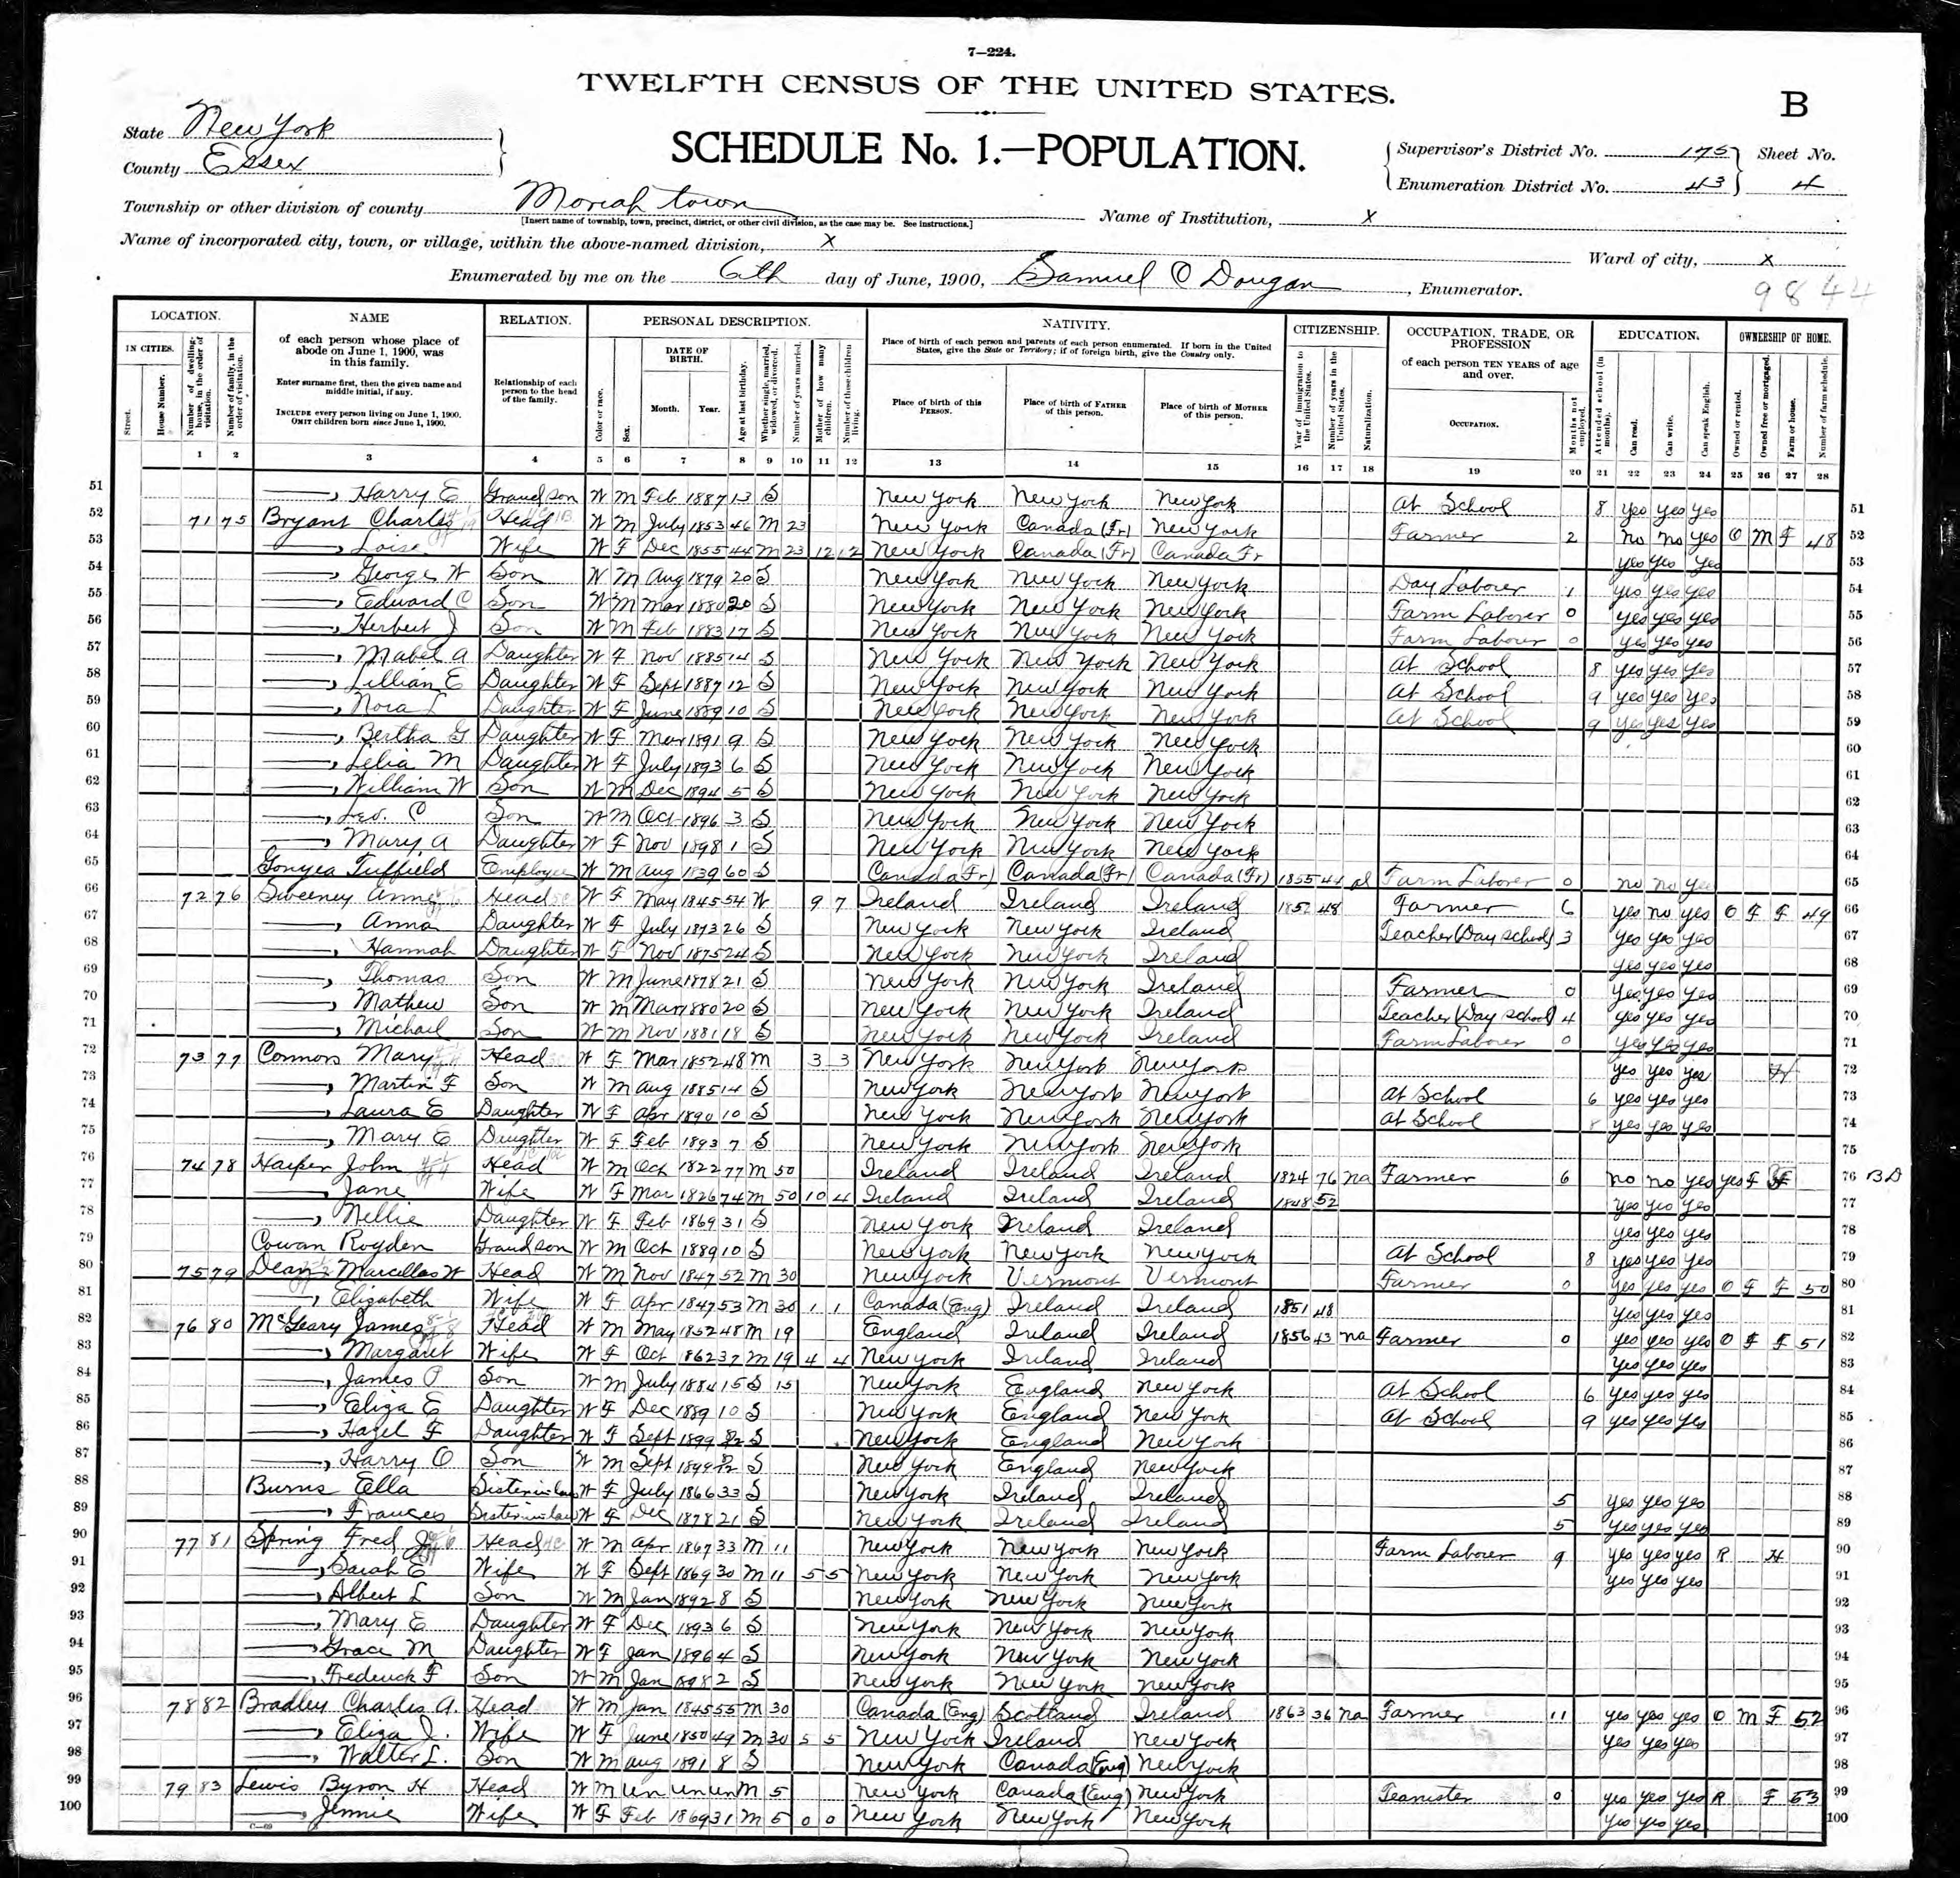 7—224.
TWELFTH CENSUS OF THE UNITED STATES.
B
State New York
County Essex
SCHEDULE No. 1.—POPULATION.
Supervisor's District No. 175 Sheet No.
Enumeration District No. 43 4
Township or other division of county Moriah town
[Insert name of township, town, precinct, district, or other civil division, as the case may be. See instructions.]
Name of Institution, X
Name of incorporated city, town, or village, within the above-named division, X
Ward of city, X
Enumerated by me on the 6th day of June, 1900, Samuel C Dougan, Enumerator.
9844
LOCATION. NAME RELATION. PERSONAL DESCRIPTION. NATIVITY. CITIZENSHIP. OCCUPATION, TRADE, OR PROFESSION EDUCATION. OWNERSHIP OF HOME.
IN CITIES. Street. House Number. Number of dwelling-house, in the order of visitation. Number of family, in the order of visitation.
of each person whose place of abode on June 1, 1900, was in this family.
Enter surname first, then the given name and middle initial, if any.
INCLUDE every person living on June 1, 1900. OMIT children born since June 1, 1900.
Relationship of each person to the head of the family.
Color or race. Sex. DATE OF BIRTH. Month. Year. Age at last birthday. Whether single, married, widowed, or divorced. Number of years married. Mother of how many children. Number of these children living.
Place of birth of each person and parents of each person enumerated. If born in the United States, give the State or Territory; if of foreign birth, give the Country only.
Place of birth of this PERSON. Place of birth of FATHER of this person. Place of birth of MOTHER of this person.
Year of immigration to the United States. Number of years in the United States. Naturalization.
of each person TEN YEARS of age and over.
OCCUPATION. Months not employed.
Attended school (in months). Can read. Can write. Can speak English.
Owned or rented. Owned free or mortgaged. Farm or house. Number of farm schedule.
1 2 3 4 5 6 7 8 9 10 11 12 13 14 15 16 17 18 19 20 21 22 23 24 25 26 27 28
51 ——, Harry E Grandson W M Feb 1887 13 S New York New York New York At School 8 yes yes yes 51
52 71 75 Bryant Charles Head W M July 1853 46 M 23 New York Canada (Fr) New York Farmer 2 no no yes O M F 48 52
53 ——, Loise Wife W F Dec 1855 44 M 23 12 12 New York Canada (Fr) Canada Fr yes yes yes 53
54 ——, George W Son W M Aug 1879 20 S New York New York New York Day Laborer 1 yes yes yes 54
55 ——, Edward C Son W M Mar 1880 20 S New York New York New York Farm Laborer 0 yes yes yes 55
56 ——, Herbert J Son W M Feb 1883 17 S New York New York New York Farm Laborer 0 yes yes yes 56
57 ——, Mabel A Daughter W F Nov 1885 14 S New York New York New York At School 8 yes yes yes 57
58 ——, Lillian E Daughter W F Sept 1887 12 S New York New York New York At School 9 yes yes yes 58
59 ——, Nora L Daughter W F June 1889 10 S New York New York New York At School 9 yes yes yes 59
60 ——, Bertha G Daughter W F Mar 1891 9 S New York New York New York 60
61 ——, Lelia M Daughter W F July 1893 6 S New York New York New York 61
62 ——, William W Son W M Dec 1894 5 S New York New York New York 62
63 ——, Leo. C Son W M Oct 1896 3 S New York New York New York 63
64 ——, Mary A Daughter W F Nov 1898 1 S New York New York New York 64
65 Gonyea Tuffield Employee W M Aug 1839 60 S Canada (Fr) Canada (Fr) Canada (Fr) 1855 44 al Farm Laborer 0 no no yes 65
66 72 76 Sweeney Anne Head W F May 1845 54 W 9 7 Ireland Ireland Ireland 1852 48 Farmer 6 yes no yes O F F 49 66
67 ——, Anna Daughter W F July 1873 26 S New York New York Ireland Teacher (Day School) 3 yes yes yes 67
68 ——, Hannah Daughter W F Nov 1875 24 S New York New York Ireland yes yes yes 68
69 ——, Thomas Son W M June 1878 21 S New York New York Ireland Farmer 0 yes yes yes 69
70 ——, Mathew Son W M Mar 1880 20 S New York New York Ireland Teacher (Day School) 4 yes yes yes 70
71 ——, Michael Son W M Nov 1881 18 S New York New York Ireland Farm Laborer 0 yes yes yes 71
72 73 77 Connors Mary Head W F Mar 1852 48 M 3 3 New York New York New York yes yes yes H 72
73 ——, Martin F Son W M Aug 1885 14 S New York New York New York At School 6 yes yes yes 73
74 ——, Laura E Daughter W F Apr 1890 10 S New York New York New York At School 8 yes yes yes 74
75 ——, Mary E Daughter W F Feb 1893 7 S New York New York New York 75
76 74 78 Harper John Head W M Oct 1822 77 M 50 Ireland Ireland Ireland 1824 76 na Farmer 6 no no yes yes F F 76 BD
77 ——, Jane Wife W F Mar 1826 74 M 50 10 4 Ireland Ireland Ireland 1848 52 yes yes yes 77
78 ——, Nellie Daughter W F Feb 1869 31 S New York Ireland Ireland yes yes yes 78
79 Cowan Royden Grandson W M Oct 1889 10 S New York New York New York At School 8 yes yes yes 79
80 75 79 Dean Marcellus W Head W M Nov 1847 52 M 30 New York Vermont Vermont Farmer 0 yes yes yes O F F 50 80
81 ——, Elizabeth Wife W F Apr 1847 53 M 30 1 1 Canada (Eng) Ireland Ireland 1851 48 yes yes yes 81
82 76 80 McGeary James Head W M May 1852 48 M 19 England Ireland Ireland 1856 43 na Farmer 0 yes yes yes O F F 51 82
83 ——, Margaret Wife W F Oct 1862 37 M 19 4 4 New York Ireland Ireland yes yes yes 83
84 ——, James P Son W M July 1884 15 S 15 New York England New York At School 6 yes yes yes 84
85 ——, Eliza E Daughter W F Dec 1889 10 S New York England New York At School 9 yes yes yes 85
86 ——, Hazel F Daughter W F Sept 1899 8/12 S New York England New York 86
87 ——, Harry O Son W M Sept 1899 8/12 S New York England New York 87
88 Burns Ella Sister in law W F July 1866 33 S New York Ireland Ireland 5 yes yes yes 88
89 ——, Frances Sister in law W F Dec 1878 21 S New York Ireland Ireland 5 yes yes yes 89
90 77 81 Spring Fred J Head W M Apr 1867 33 M 11 New York New York New York Farm Laborer 9 yes yes yes R H 90
91 ——, Sarah E Wife W F Sept 1869 30 M 11 5 5 New York New York New York yes yes yes 91
92 ——, Albert L Son W M Jan 1892 8 S New York New York New York 92
93 ——, Mary E Daughter W F Dec 1893 6 S New York New York New York 93
94 ——, Grace M Daughter W F Jan 1896 4 S New York New York New York 94
95 ——, Frederick F Son W M Jan 1898 2 S New York New York New York 95
96 78 82 Bradley Charles A. Head W M Jan 1845 55 M 30 Canada (Eng) Scotland Ireland 1863 36 na Farmer 11 yes yes yes O M F 52 96
97 ——, Eliza J. Wife W F June 1850 49 M 30 5 5 New York Ireland New York yes yes yes 97
98 ——, Walter L. Son W M Aug 1891 8 S New York Canada (Eng) New York 98
99 79 83 Lewis Byron H Head W M Un Un Un M 5 New York Canada (Eng) New York Teamster 0 yes yes yes R F 53 99
100 ——, Jennie Wife W F Feb 1869 31 M 5 0 0 New York New York New York yes yes yes 100